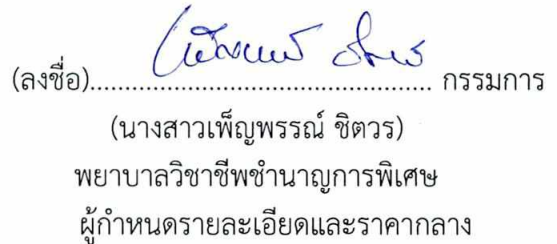 (ลงชื่อ)................................................ กรรมการ
(นางสาวเพ็ญพรรณ์ ชิตวร)
พยาบาลวิชาชีพชำนาญการพิเศษ
ผู้กำหนดรายละเอียดและราคากลาง